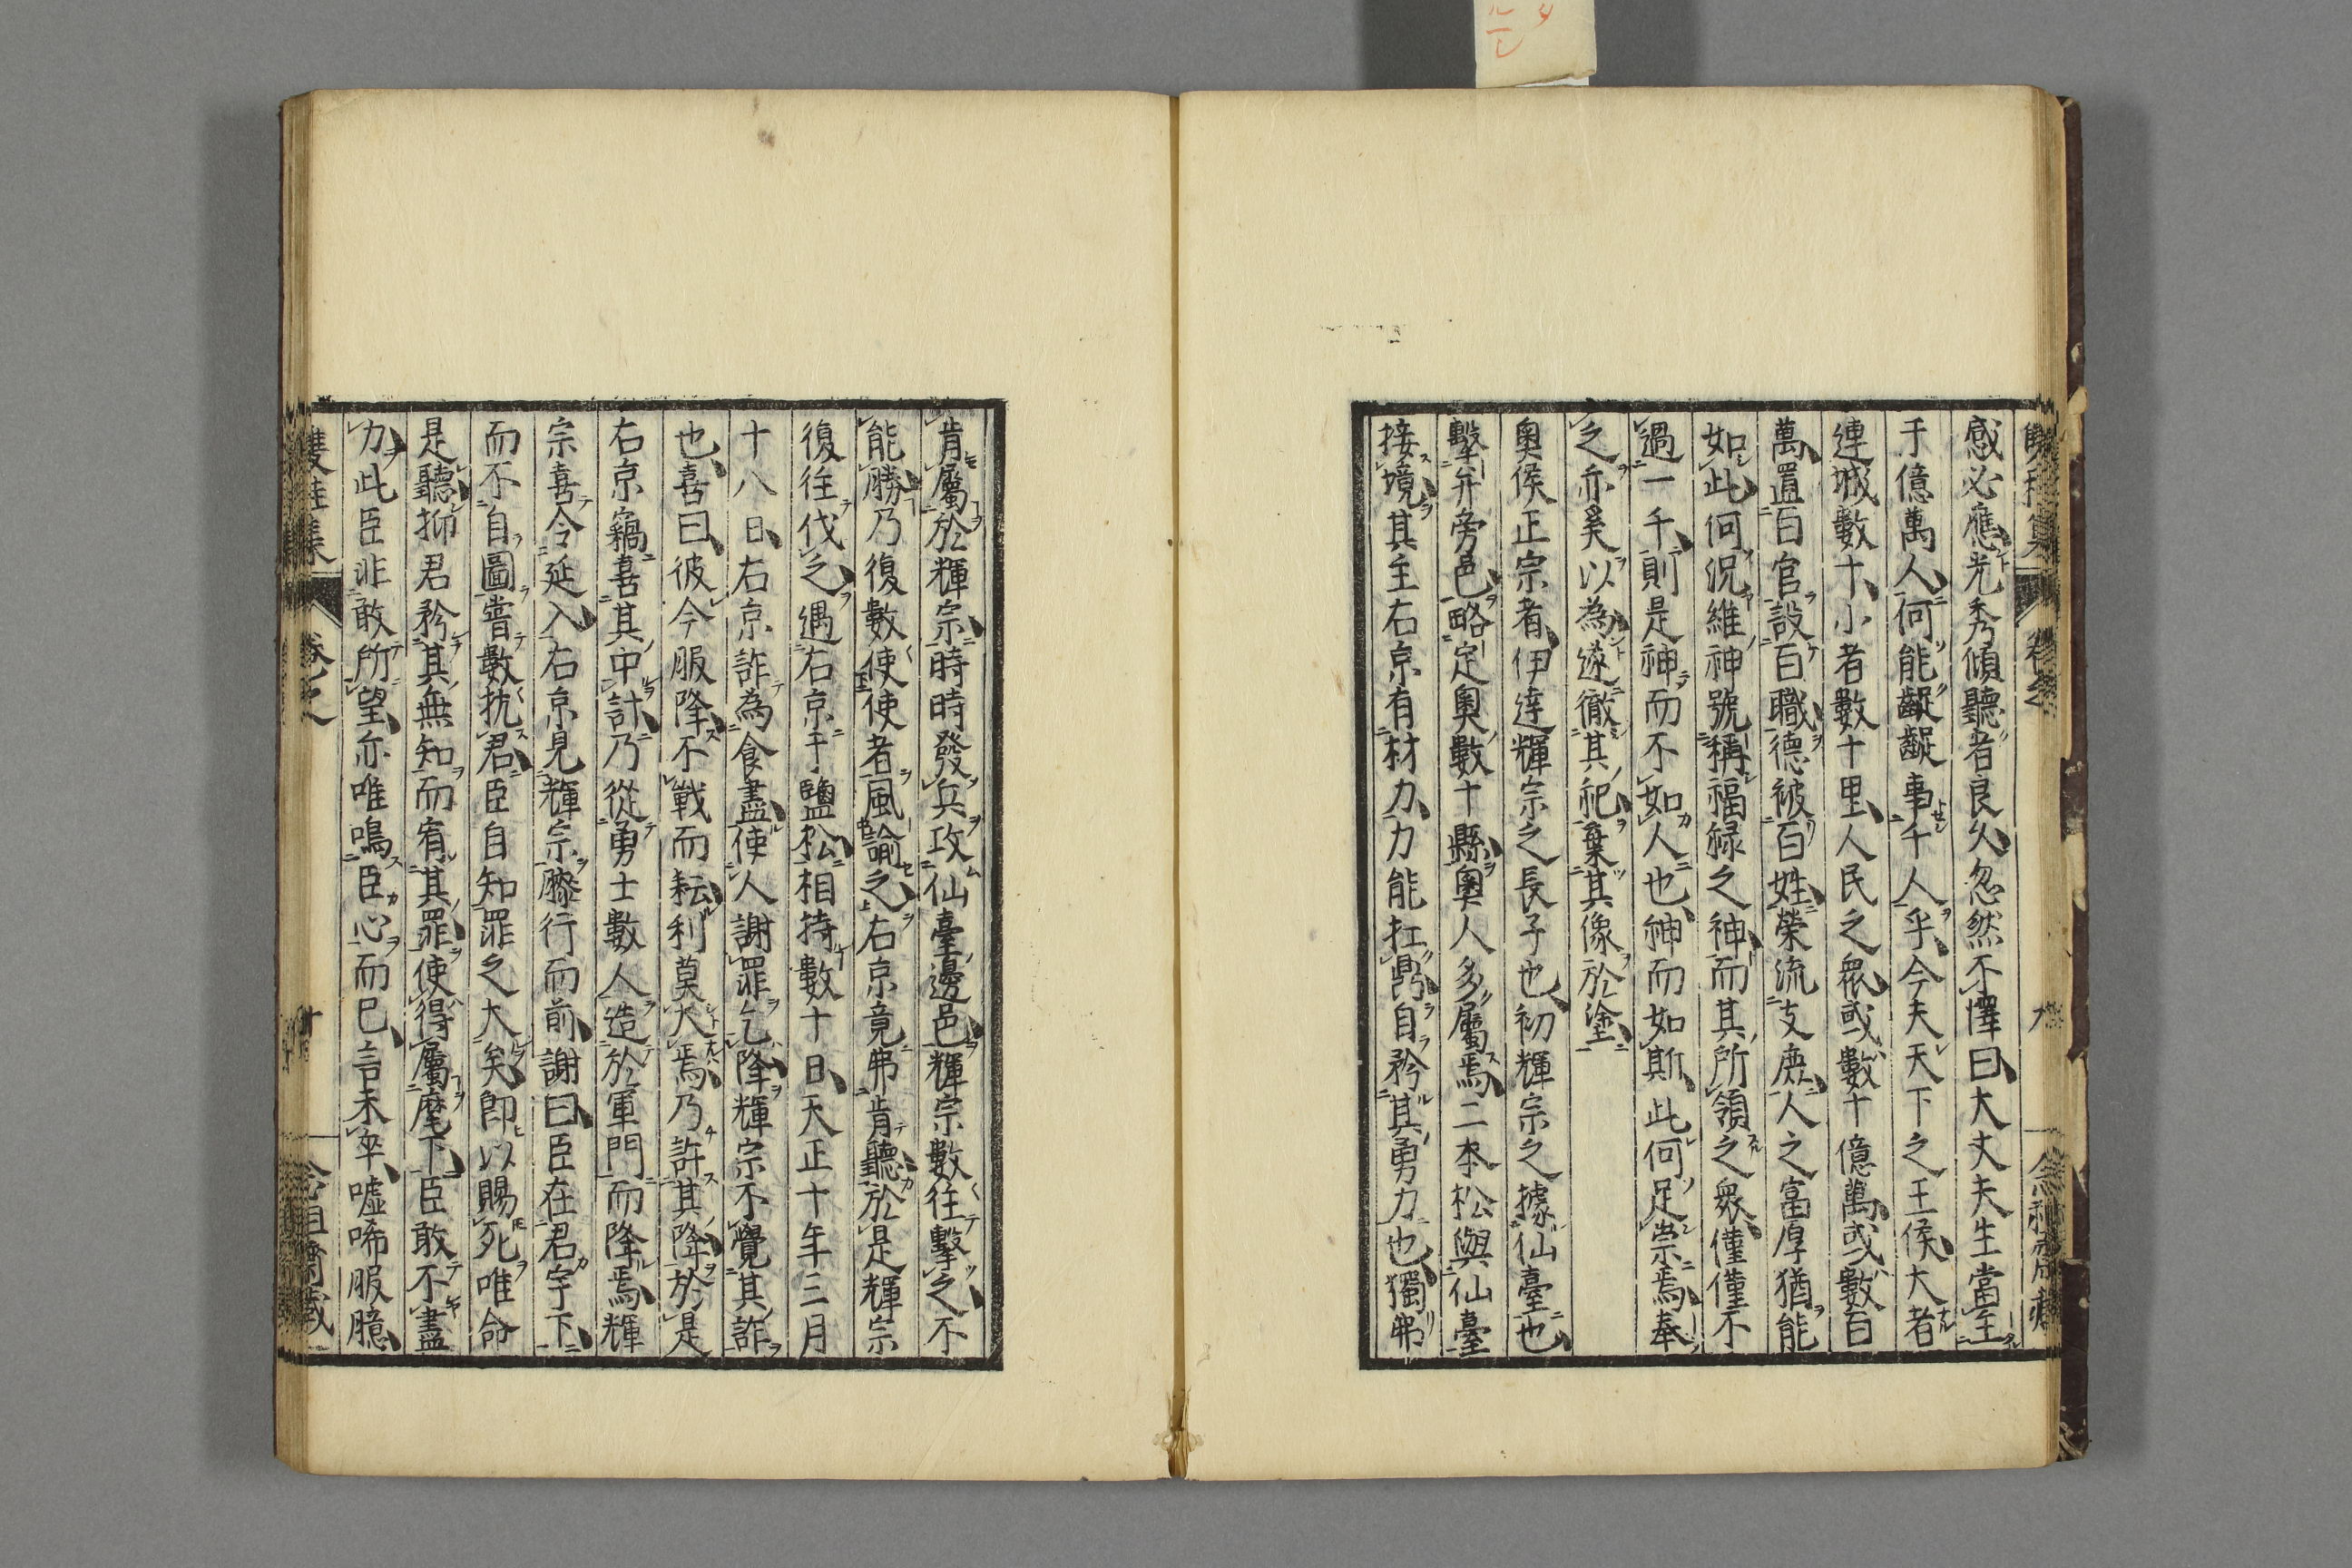 感必應光秀傾聽者良久忽然不懌曰大丈夫生當至
于億萬人何能齪齪事千人乎今夫天下之王侯大者
連城數十小者數十里人民之衆或數十億萬或數百
萬置百官設百職德被百姓榮流支庶人之富厚猶能
如此何況維神號稱福祿之神而其所領之衆僅僅不
過一千則是神而不如人也神而如斯此何足崇焉奉
之亦奚以為遂徹其祀棄其像於塗
奧侯正宗者伊達輝宗之長子也初輝宗之據仙臺也
擊弁旁邑略定奧數十縣奧人多屬焉二本松與仙臺
接境其主右京有材力力能扛鼎自矜其勇力也獨弗
肯屬於輝宗時時發兵攻仙臺邊邑輝宗數往擊之不
能勝乃復數使使者風諭之右京竟弗肯聽於是輝宗
復往伐之遇右京于鹽松相持數十日天正十年三月
十八日右京詐為食盡使人謝罪乞降輝宗不覺其詐
也喜曰彼今服降不戰而耘利莫大焉乃許其降於是
右京竊喜其中計乃從勇士數人造於軍門而降焉輝
宗喜令延入右京見輝宗膝行而前謝曰臣在君宇下
而不自圖嘗數抗君臣自知罪之大矣即以賜死唯命
是聽抑君矜其無知而宥其罪使得屬麾下臣敢不盡
力此臣非敢所望亦唯鳴臣心而已言未卒噓唏服臆